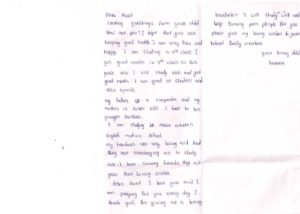 Dear Aunt
Loving greetings from your child
How are you? I hope that you are
keeping good health I am very fine and
happy. I am studing in 6th class I
got good marks in 5th class in this
year also I will study well and get
good marks. I am good at studies and
also sports.
my father is a carpenter and my
mother is house wife I have to two
younger brother.
I am studing in
English medium school.
my teachers are very loving and kind
they are encouraging me to study
well. I have many friends they all
gave their loving wishes
dear Aunt I love you and I
am praying for you every day I
thank god. for giving me a loving
I will study well and
help many poor people like you
please give my loving wishes to your
beloved family members
your loving child